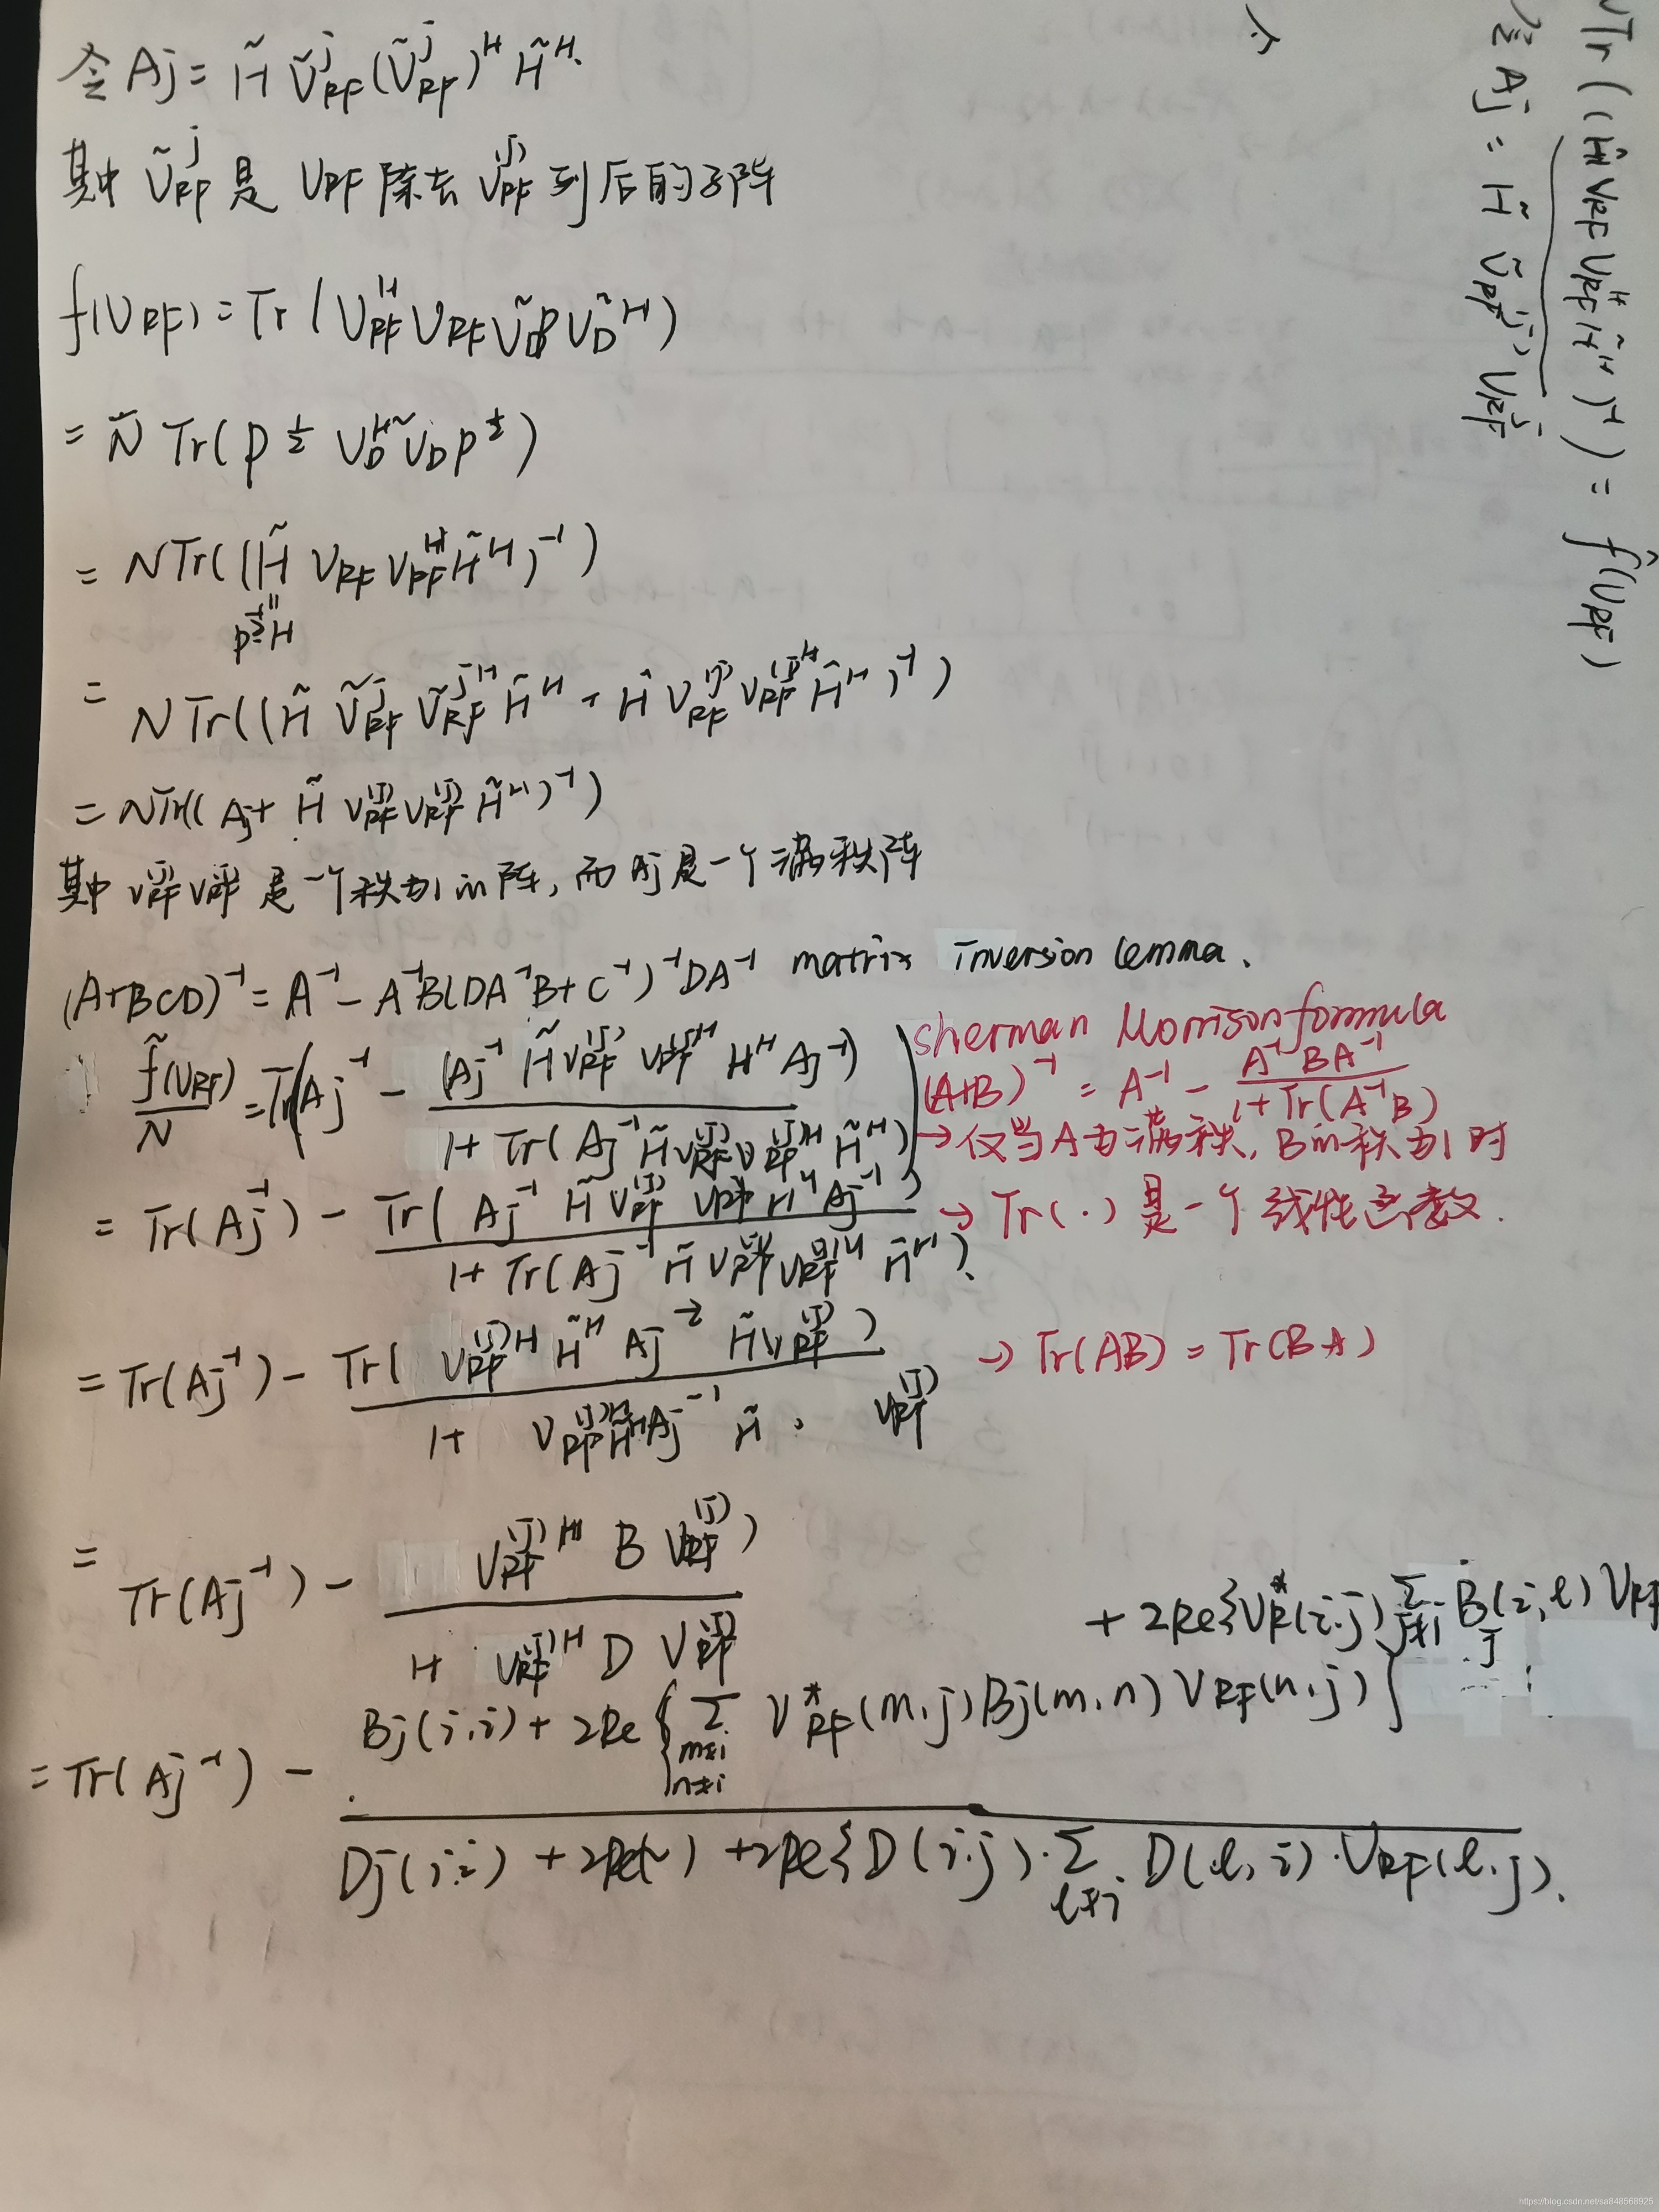 令 Aj = H̃ Ṽ_RF^j (Ṽ_RF^j)^H H̃^H.
其中 Ṽ_RF^j 是 V_RF 除去 V_RF^(j) 列后的子阵
f(V_RF) = Tr( V_RF^H V_RF Ṽ_D P Ṽ_D^H )
= N Tr( P^½ V_D^H~ V_D P^½ )
= N Tr( ( H̃ V_RF V_RF^H H̃^H )^-1 )
P^-½ H
= N Tr( ( H̃ Ṽ_RF^j Ṽ_RF^jH H̃^H + H̃ V_RF^(j) V_RF^(j)H H̃^H )^-1 )
= N Tr( ( Aj + H̃ V_RF^(j) V_RF^(j) H̃^H )^-1 )
其中 V_RF^(j) V_RF^(j) 是一个秩为1的阵, 而 Aj 是一个满秩阵
(A+BCD)^-1 = A^-1 - A^-1 B(DA^-1 B + C^-1)^-1 DA^-1 matrix inversion lemma.
f̃(V_RF)/N = Tr( Aj^-1 - (Aj^-1 H̃ V_RF^(j) V_RF^(j)H H^H Aj^-1) / 1 + Tr( Aj^-1 H̃ V_RF^(j) V_RF^(j)H H̃^H ) )
Sherman Morrison formula
(A+B)^-1 = A^-1 - A^-1 B A^-1 / 1 + Tr(A^-1 B)
→ 仅当A为满秩, B的秩为1时
= Tr(Aj^-1) - Tr( Aj^-1 H̃ V_RF^(j) V_RF^H H^H Aj^-1 ) / 1 + Tr( Aj^-1 H̃ V_RF^(j) V_RF^(j)H H̃^H ).
→ Tr(·) 是一个线性函数.
= Tr(Aj^-1) - Tr( V_RF^(j)H H̃^H Aj^-2 H̃ V_RF^(j) ) / 1 + V_RF^(j)H H̃^H Aj^-1 H̃ . V_RF^(j)
→ Tr(AB) = Tr(BA)
= Tr(Aj^-1) - V_RF^(j)H B V_RF^(j) ) / 1+ V_RF^(j)H D V_RF^(j)
+ 2Re{ V_R^*(i.j) Σ B_j(i,l) V_RF
= Tr(Aj^-1) - Bj(i,i) + 2Re { Σ_{m≠i n≠i} V_RF^*(m,j) Bj(m,n) V_RF(n,j) } / Dj(i.i) + 2Re(~) + 2Re{ D(i.j) · Σ_{l≠i} D(l,i) · V_RF(l.j).
NTr( ( H̃ V_RF V_RF^H H̃^H )^-1 ) = f̂(V_RF)
令 Aj = H̃ Ṽ_RF^j V_RF^j
https://blog.csdn.net/sa848568925